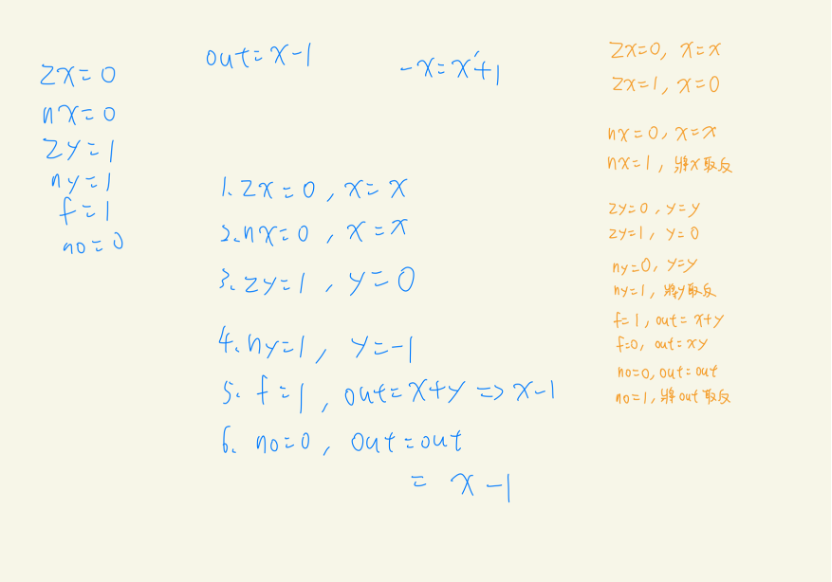 zx=0
nx=0
zy=1
ny=1
f=1
no=0
out=x-1
-x=x'+1
1. zx=0, x=x
2. nx=0, x=x
3. zy=1, y=0
4. ny=1, y=-1
5. f=1, out=x+y => x-1
6. no=0, out=out
= x-1
zx=0, x=x
zx=1, x=0
nx=0, x=x
nx=1, 將x取反
zy=0, y=y
zy=1, y=0
ny=0, y=y
ny=1, 將y取反
f=1, out=x+y
f=0, out=xy
no=0, out=out
no=1, 將out取反